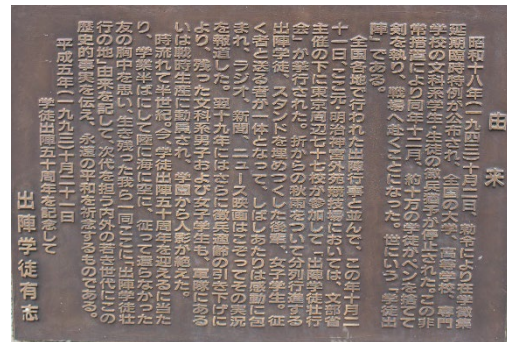 由来
昭和十八年(一九四三)十月二日、勅令により在学徴集
延期臨時特例が公布され、全国の大学、高等学校、専門
学校の文科系学生・生徒の徴兵猶予が停止された。この非
常措置により同年十二月、約十万の学徒がペンを捨てて
剣を執り、戦場へ赴くことになった。世にいう「学徒出
陣」である。
全国各地で行われた出陣行事と並んで、この年十月二
十一日、ここ元・明治神宮外苑競技場においては、文部省
主催の下に東京周辺七十七校が参加して「出陣学徒壮行
会」が挙行された。折からの秋雨をついて分列行進する
出陣学徒、スタンドを埋めつくした後輩、女子学生。征
く者と送る者が一体となって、しばしあたりは感動に包
まれ、ラジオ、新聞、ニュース映画はこぞってその実況
を報道した。翌十九年にはさらに徴兵適齢の引き下げに
より、残った文科系男子および女子学生も、軍隊にある
いは戦時生産に動員され、学園から人影が絶えた。
時流れて半世紀。今、学徒出陣五十周年を迎えるに当た
り、学業半ばにして陸に海に空に、征って還らなかった
友の胸中を思い、生き残った我ら一同ここに、「出陣学徒壮
行の地」由来を記して、次代を担う内外の若き世代にこの
歴史的事実を伝え、永遠の平和を祈念するものである。
平成五年(一九九三)十月二十一日
学徒出陣五十周年を記念して
出陣学徒有志